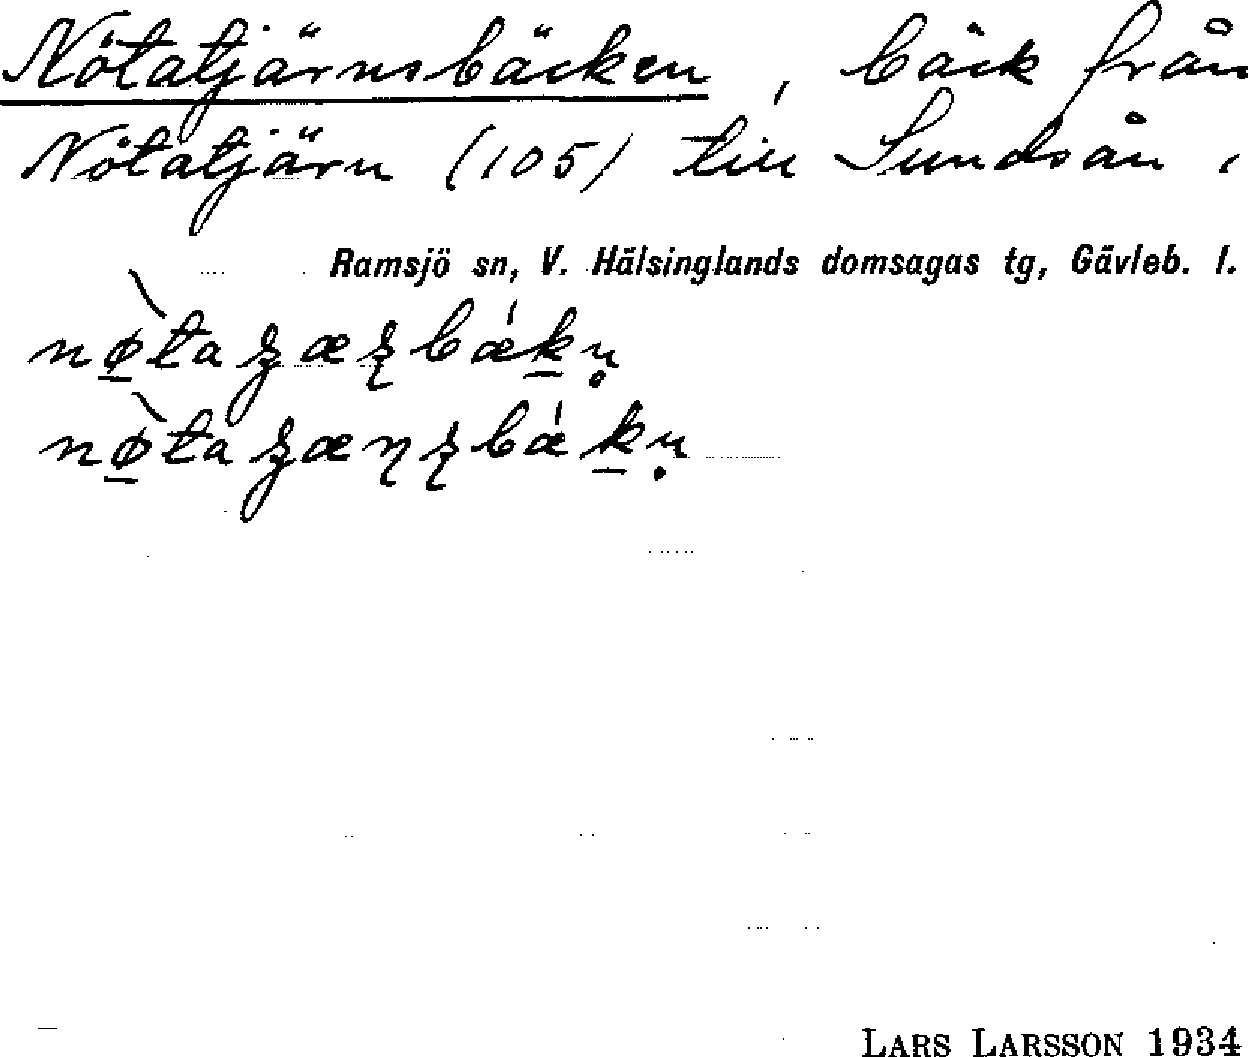 Nötatjärnsbäcken, bäck från
Nötatjärn (105) till Sundsån.
Ramsjö sn, V. Hälsinglands domsagas tg, Gävleb. l.
LARS LARSSON 1934